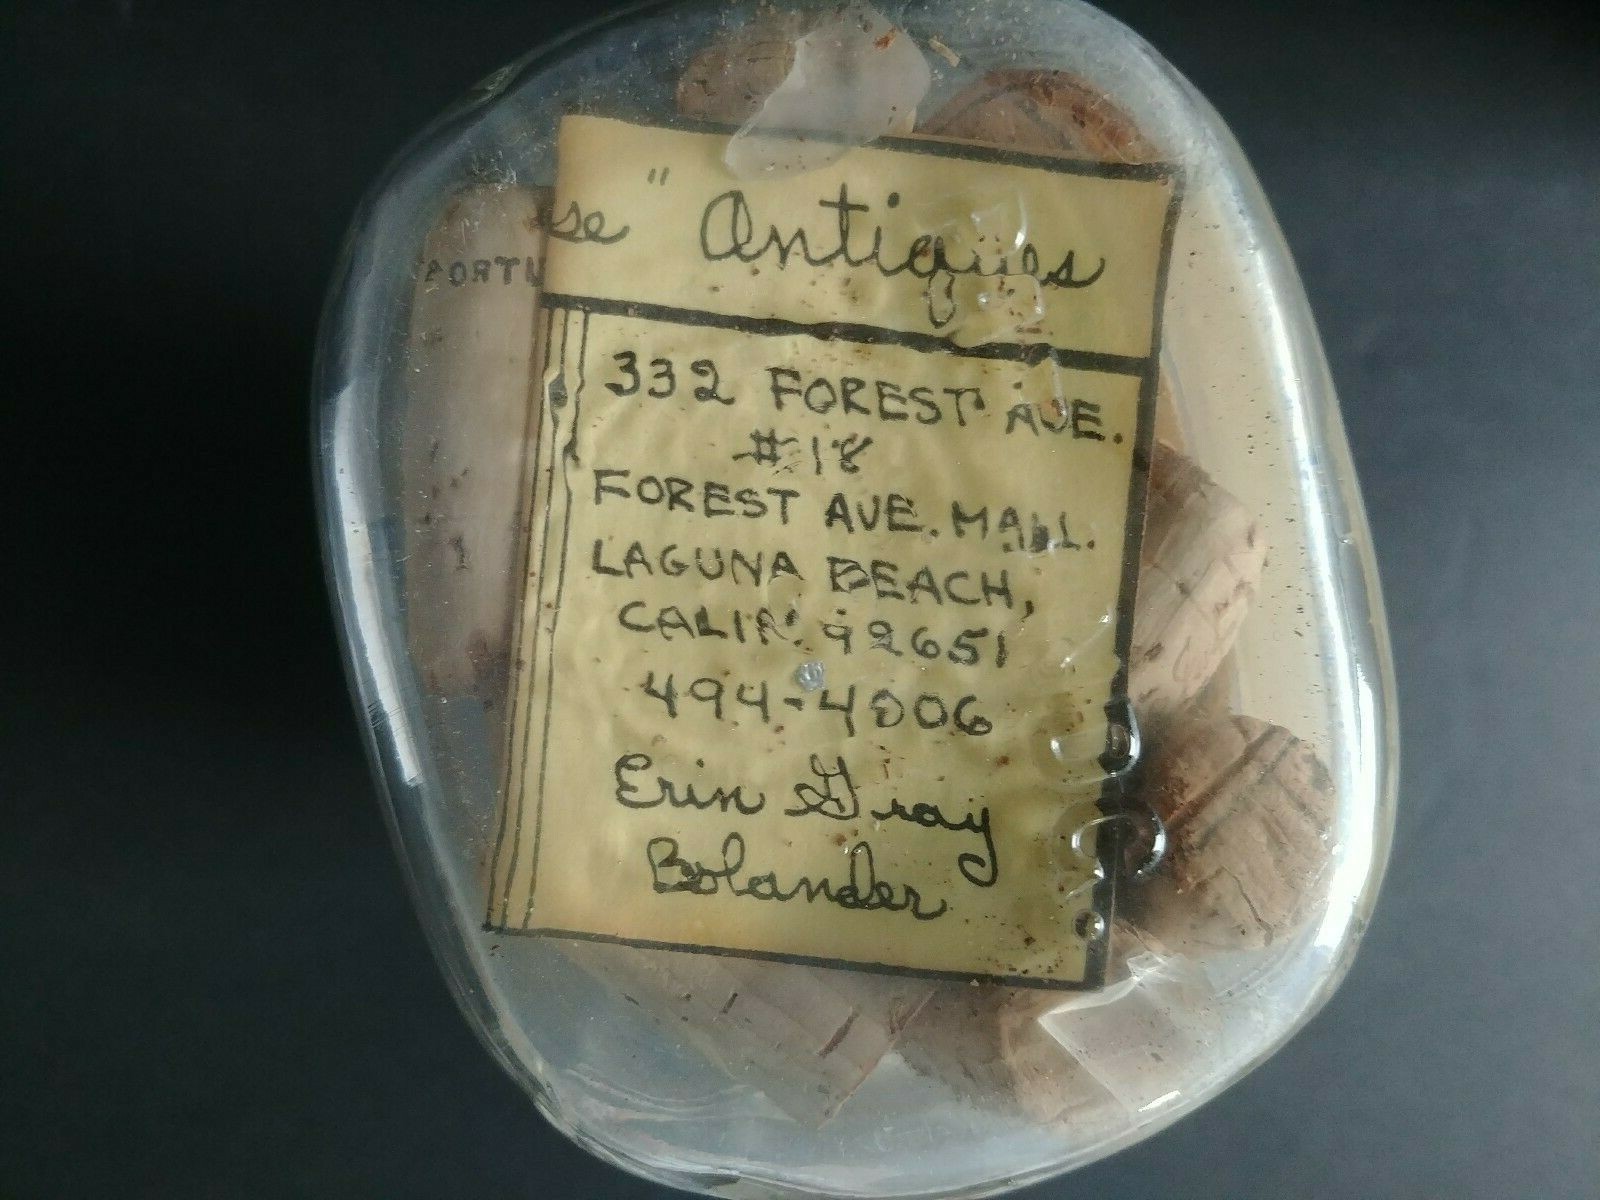 " Antiques
332 FOREST AVE.
#18
FOREST AVE. MALL.
LAGUNA BEACH,
CALIF. 92651
494-4006
Erin Gray
Bolander